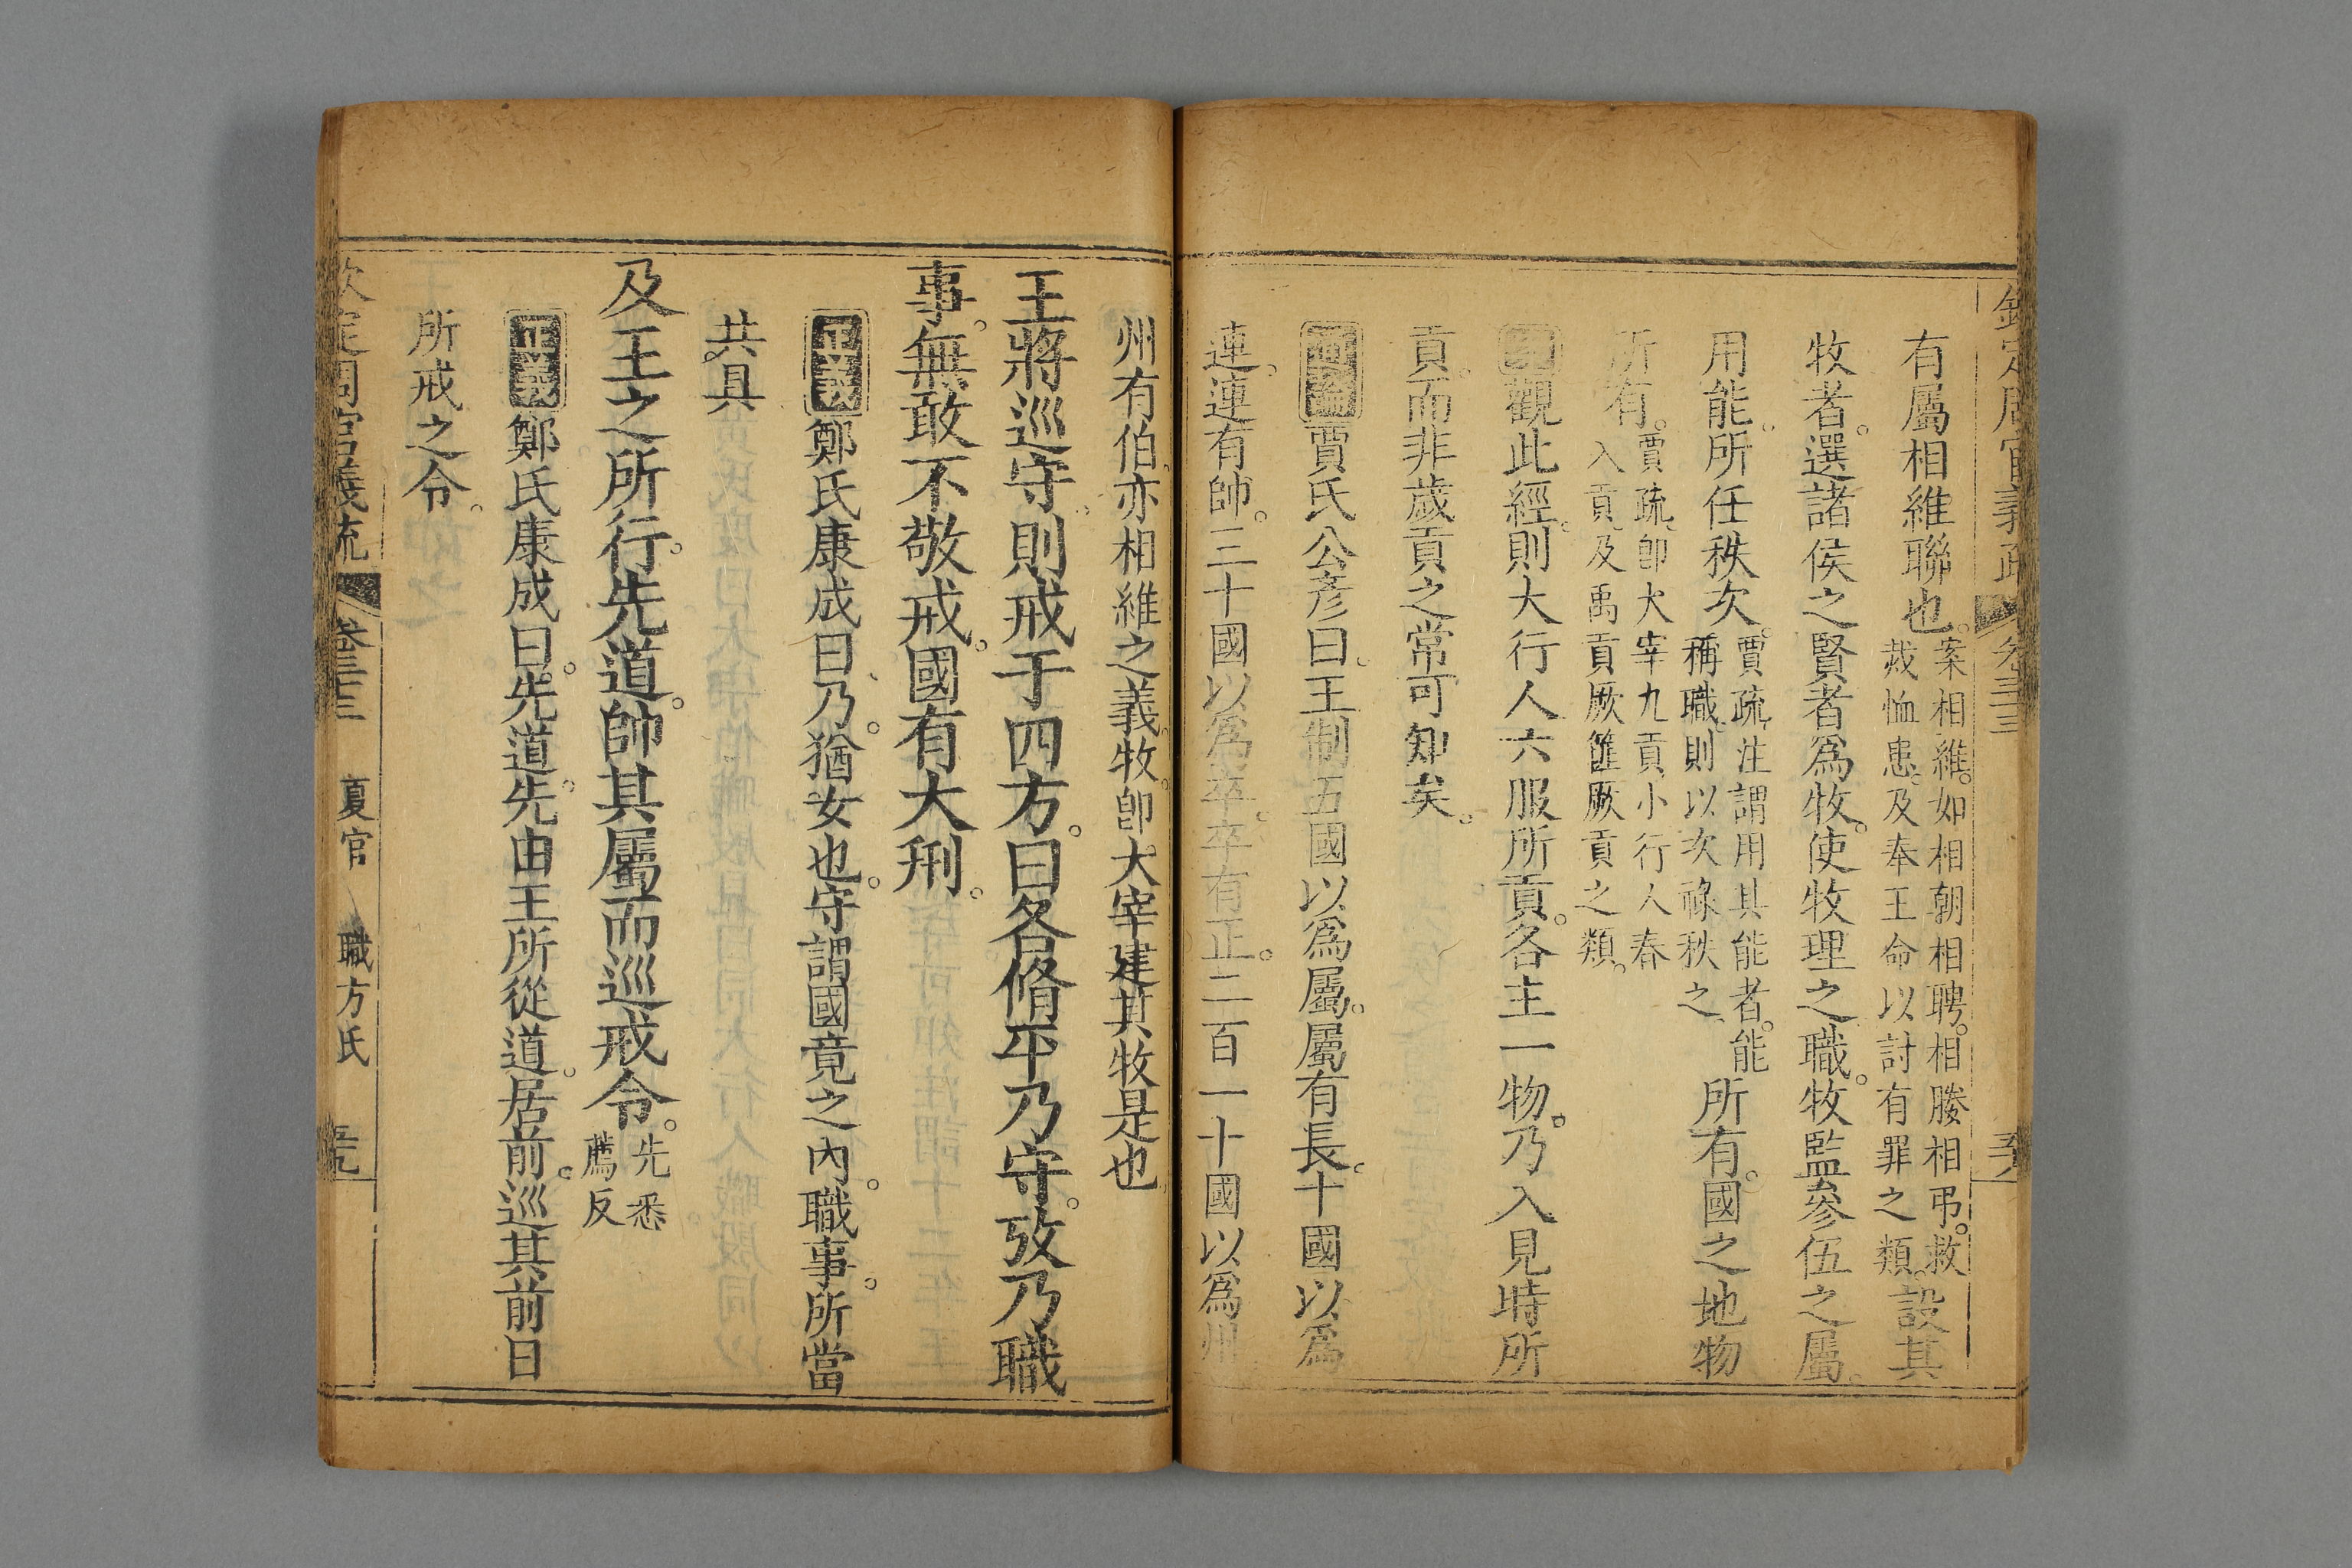 欽定周官義疏 卷三十三
有屬相維聯也。案相維。如相朝相聘。相賸相弔。救
烖恤患。及奉王命以討有罪之類。設其
牧者。選諸侯之賢者爲牧。使牧理之職。牧監參伍之屬。
用能。所任秩次。賈疏。注謂用其能者。能
稱職。則以次祿秩之。所有。國之地物
所有。賈疏。卽大宰九貢。小行人春
入貢。及禹貢厥篚厥貢之類。
觀此經。則大行人六服所貢。各主一物。乃入見時所
貢。而非歲貢之常可知矣。
通論賈氏公彥曰。王制五國以爲屬。屬有長。十國以爲
連。連有帥。三十國以爲卒。卒有正。二百一十國以爲州
州有伯。亦相維之義。牧。卽大宰建其牧是也
王將巡守。則戒于四方。曰各脩平乃守。攷乃職
事。無敢不敬戒。國有大刑。
正義鄭氏康成曰。乃。猶女也。守。謂國竟之內。職事。所當
共具
及王之所行。先道。帥其屬而巡戒令。先悉
薦反
正義鄭氏康成曰。先道。先由王所從道。居前。巡其前日
所戒之令。
欽定周官義疏 卷三十三 夏官 職方氏